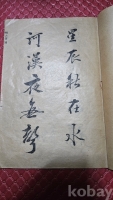 星辰秋在水
河漢夜無聲
kobay